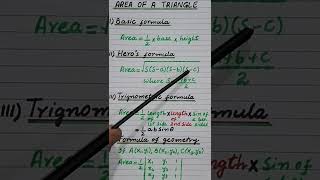 AREA OF A TRIANGLE
I) Basic formula
Area = 1/2 x base x height
II) Hero's formula
Area = √S(S-a)(S-b)(S-c)
where S =
+b+c
2
III) Trignometric formula
Area = 1/2 length of 1st side x length of 2nd side x Sin of
= 1/2 ab Sinθ
Formula of geometry
If A(x₁,y₁), B(x₂,y₂), C(x₃,y₃)
Area = 1/2 x₁ y₁ 1
(S-c)
+b+c
2
III)
length x Sin of